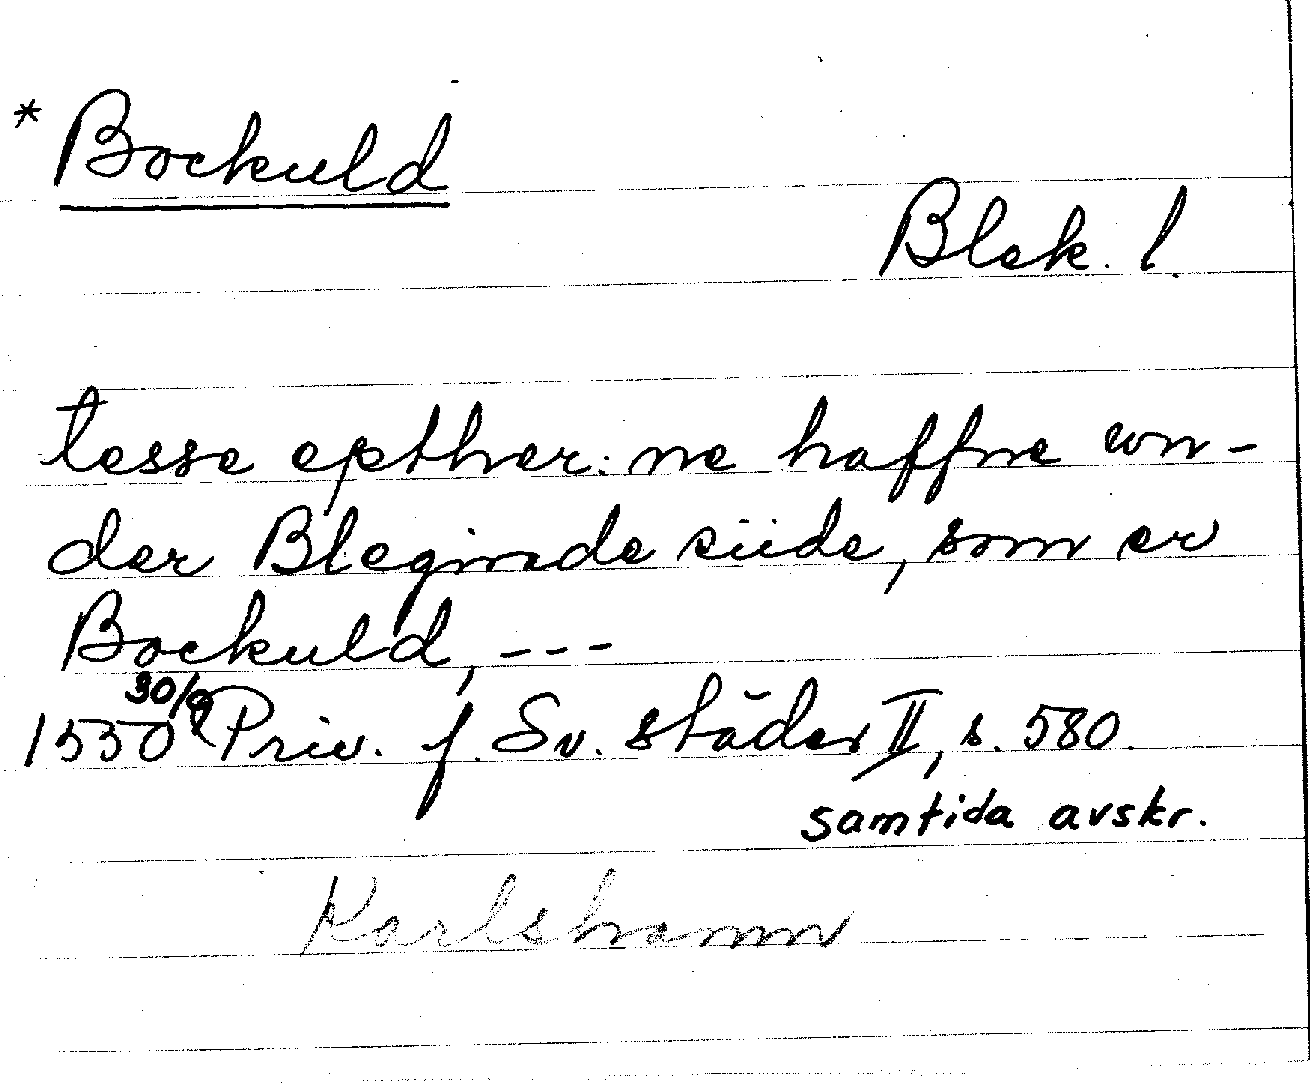 * Bockuld
Blek. l.
tesse epther: ne haffne wn-
der Bleginde siide, som er
Bockuld, ---
1550 30/9 Priv. f. Sv. städer II, s. 580.
samtida avskr.
Karlshamn